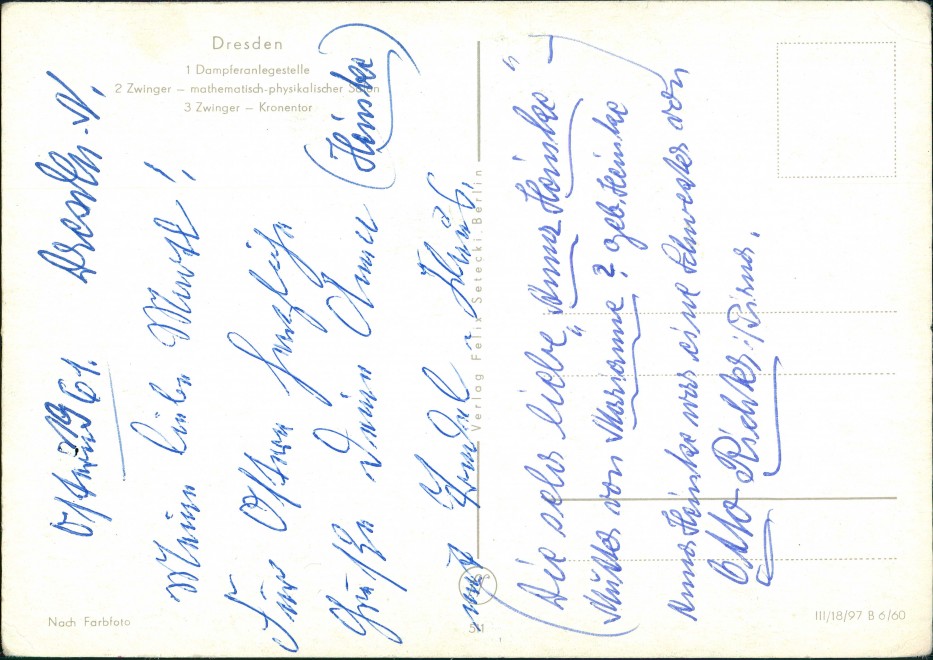 Dresden
1 Dampferanlegestelle
2 Zwinger – mathematisch-physikalischer Salon
3 Zwinger – Kronentor
Ostern 1961. Dresden-N.
Mein liebes !
Für Ostern herzliche
Grüße Deine Anna (Heinke)
und
(Die sehr liebe „Anna Heinke“ –)
Mutter von Marianne? geb. Heinke
Anna Heinke war eine Schwester von
Otto Richter: Pirna.
Verlag Felix Setecki, Berlin
Nach Farbfoto
511
III/18/97 B 6/60